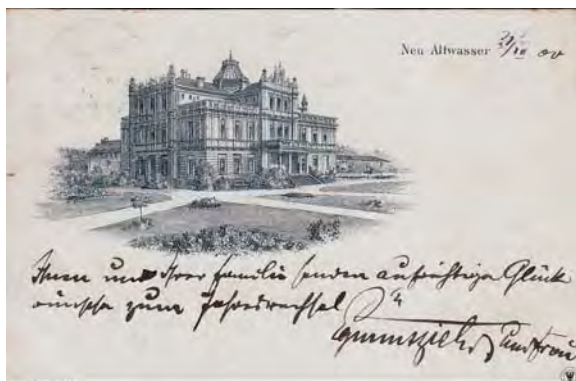 Neu Altwasser
Ihnen und Ihrer Familie senden aufrichtige Glück
wünsche zum Jahreswechsel
und Frau